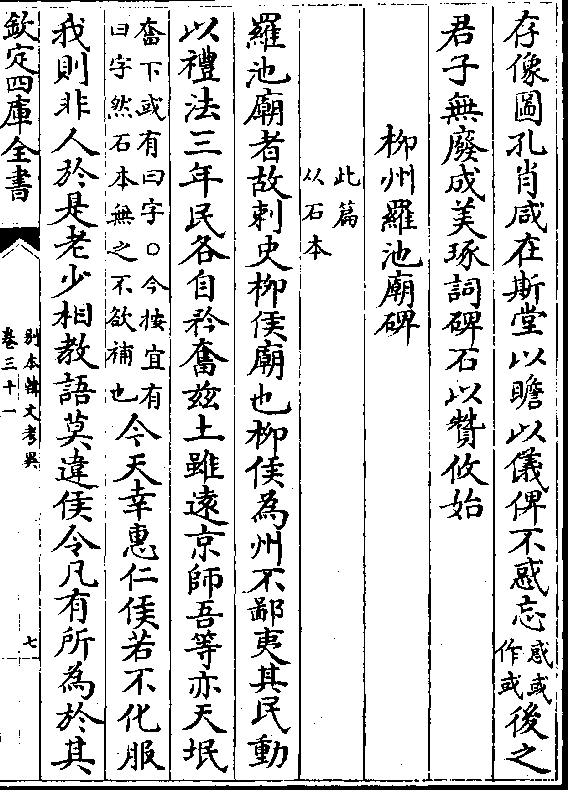 存像圖孔肖咸在斯堂以瞻以儀俾不惑忘惑或作或後之
君子無廢成美琢詞碑石以贊攸始
柳州羅池廟碑
此篇
以石本
羅池廟者故刺史柳侯廟也柳侯為州不鄙夷其民動
以禮法三年民各自矜奮兹土雖遠京師吾等亦天氓
奮下或有曰字○今按宜有
曰字然石本無之不欲補也
今天幸惠仁侯若不化服
我則非人於是老少相教語莫違侯令凡有所為於其
欽定四庫全書
别本韓文考異
卷三十一
七